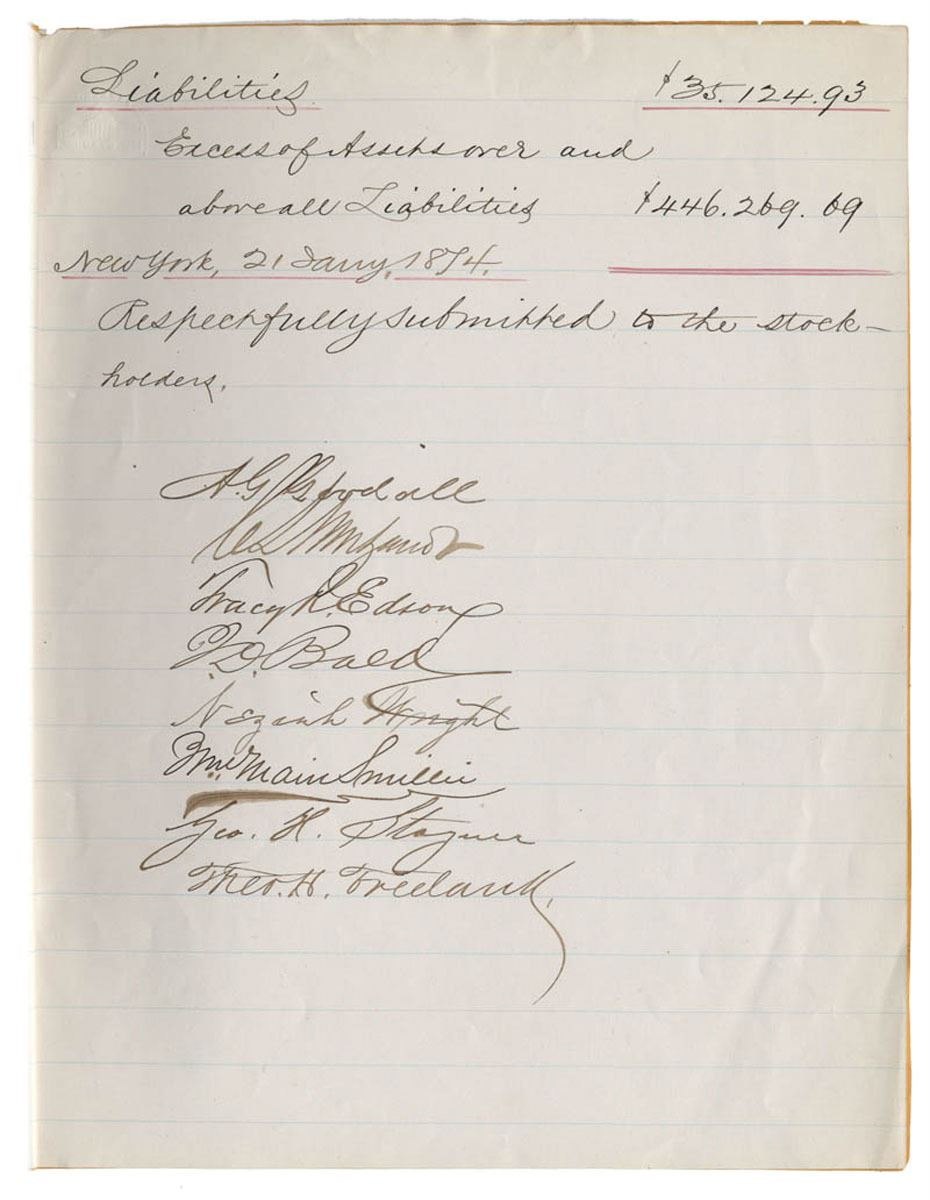 Liabilities $35.124.93
Excess of Assets over and
above all Liabilities $446.269.69
New York, 21 Jany, 1874.
Respectfully submitted to the stock-
holders.
A.G. Goodall
Tracy R. Edson
J.D. Bald
Neziah Wright
Wm. Main Smillie
Geo. H. Stayner
Theo. H. Freeland.